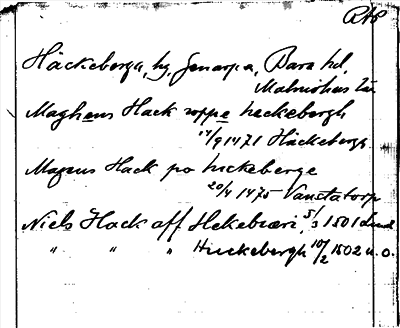 RAP
Häckeberga, hg, Genarp s, Bara hd,
Malmöhus län.
Maghens Hack voppe heckebergh
17/9 1471 Häckeberg.
Magnus Hack po hickeberge
20/4 1475 Vanstatorp
Niels Hack aff Hekebiæri, 5/3 1501 Lund
" " " Hickebergh 10/2 1502 u.o.